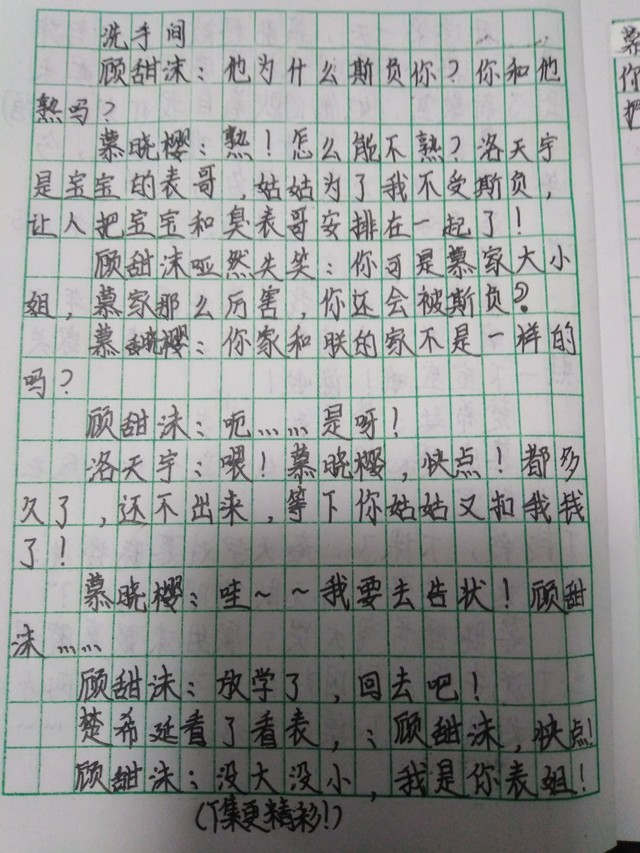 洗手间
顾甜沫：他为什么斯负你？你和他
熟吗？
慕晓樱：熟！怎么能不熟？洛天宇
是宝宝的表哥，姑姑为了我不受斯负，
让人把宝宝和臭表哥安排在一起了！
顾甜沫哑然失笑：你可是慕家大小
姐，慕家那么厉害，你还会被斯负？
慕晓樱：你家和联的家不是一样的
吗？
顾甜沫：呃……是呀！
洛天宇：喂！慕晓樱，快点！都多
久了，还不出来，等下你姑姑又扣我钱
了！
慕晓樱：哇~~我要去告状！顾甜
沫……
顾甜沫：放学了，回去吧！
楚希延看了看表，：顾甜沫，快点！
顾甜沫：没大没小，我是你表姐！
（下集更精彩！）
慕
你
把